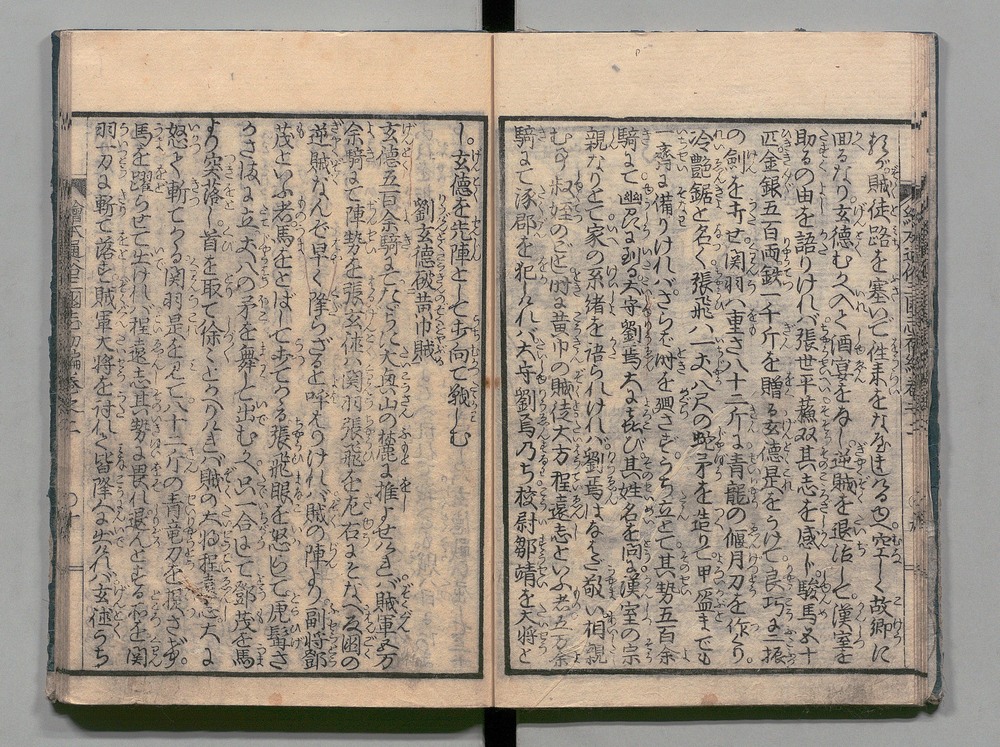 賊徒路を塞いで往来をなすこと能ハざるゆへ空しく故郷に
回るなり玄徳むかへて酒宴をなし逆賊を退治して漢室を
助るの由を語りけれバ張世平蘇双其志を感じ駿馬五十
匹金銀五百両鉄一千斤を贈る玄徳是をうけて良巧に二振
の剣をうたせ関羽ハ重さ八十二斤に青龍の偃月刀を作り
冷艶鋸と名く張飛ハ一丈八尺の蛇矛を造りて甲盔までも
一斉に備りけれバさらバ時を興さんとうち立て其勢五百余
騎にて幽州に到る太守劉焉大に喜び其姓名を問に漢室の宗
親なりとて家の系緒を語られけれバ劉焉はなはだ敬い相親
むこと叔姪のごとし時に黄巾の賊徒大方程遠志といふ者五万余
騎にて涿郡を犯しけれバ太守劉焉乃ち校尉鄒靖を大将と
し。玄徳を先陣としてむかひ向て戦しむ
劉玄徳破黄巾賊
玄徳五百余騎にて大興山の麓に推よせけれバ賊軍五万
余騎にて陣勢を張玄徳ハ関羽張飛を左右にそなへ国の
逆賊なんぞ早く降らざると呼ハりけれバ賊の陣より副将鄧
茂といふ者馬をとばして出てかゝる張飛眼を怒らして虎髯さ
かさまに立丈八の矛を舞して出むかひ只一合にして鄧茂を馬
より突落し首を取て徐々とかへりけれバ賊の大将程遠志大に
怒て斬てかゝる関羽是を見て八十二斤の青竜刀を提さげ
馬を躍らせて出けれバ程遠志其勢に畏れ退んとする所を関
羽一刀に斬て落す賊軍大将を討れ皆降人に出けれバ玄徳うち